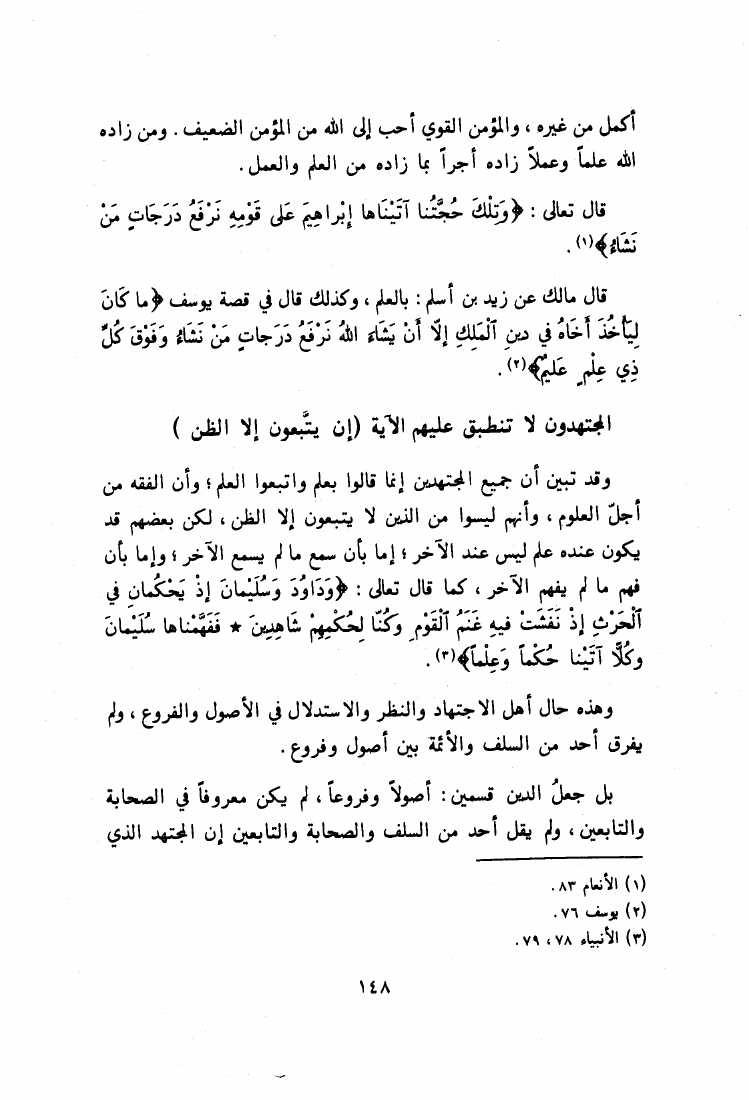 أكمل من غيره ، والمؤمن القوي أحب إلى الله من المؤمن الضعيف . ومن زاده
الله علماً وعملاً زاده أجراً بما زاده من العلم والعمل .
قال تعالى : ﴿وَتِلْكَ حُجَّتُنا آتَيْنَاها إِبْراهِيمَ عَلى قَوْمِهِ نَرْفَعُ دَرَجَاتٍ مَنْ
نَشَاءُ﴾(١) .
قال مالك عن زيد بن أسلم : بالعلم ، وكذلك قال في قصة يوسف ﴿ما كَانَ
لِيَأْخُذَ أَخَاهُ في دينِ ٱلْمَلِكِ إِلّا أَنْ يَشَاءَ اللهُ نَرْفَعُ دَرَجاتٍ مَنْ نَشَاءُ وَفَوْقَ كُلِّ
ذِي عِلْمٍ عَليمٌ﴾(٢) .
المجتهدون لا تنطبق عليهم الآية (إن يتَّبعون إلا الظن )
وقد تبين أن جميع المجتهدين إنما قالوا بعلم واتبعوا العلم ؛ وأن الفقه من
أجلّ العلوم ، وأنهم ليسوا من الذين لا يتبعون إلا الظن ، لكن بعضهم قد
يكون عنده علم ليس عند الآخر ؛ إما بأن سمع ما لم يسمع الآخر ؛ وإما بأن
فهم ما لم يفهم الآخر ، كما قال تعالى : ﴿وَدَاوُدَ وَسُلَيْمانَ إِذْ يَحْكُمانِ في
ٱلْحَرْثِ إِذْ نَفَشَتْ فيهِ غَنَمُ ٱلْقَوْمِ وكُنّا لِحُكْمِهِمْ شَاهِدِينَ ★ فَفَهَّمْناها سُلَيْمانَ
وكُلًّا آتَيْنا حُكْماً وَعِلْماً﴾(٣) .
وهذه حال أهل الاجتهاد والنظر والاستدلال في الأصول والفروع ، ولم
يفرق أحد من السلف والأئمة بين أصول وفروع .
بل جعلُ الدين قسمين : أصولاً وفروعاً ، لم يكن معروفاً في الصحابة
والتابعين ، ولم يقل أحد من السلف والصحابة والتابعين إن المجتهد الذي
(١) الأنعام ٨٣ .
(٢) يوسف ٧٦ .
(٣) الأنبياء ٧٨ ، ٧٩ .
١٤٨